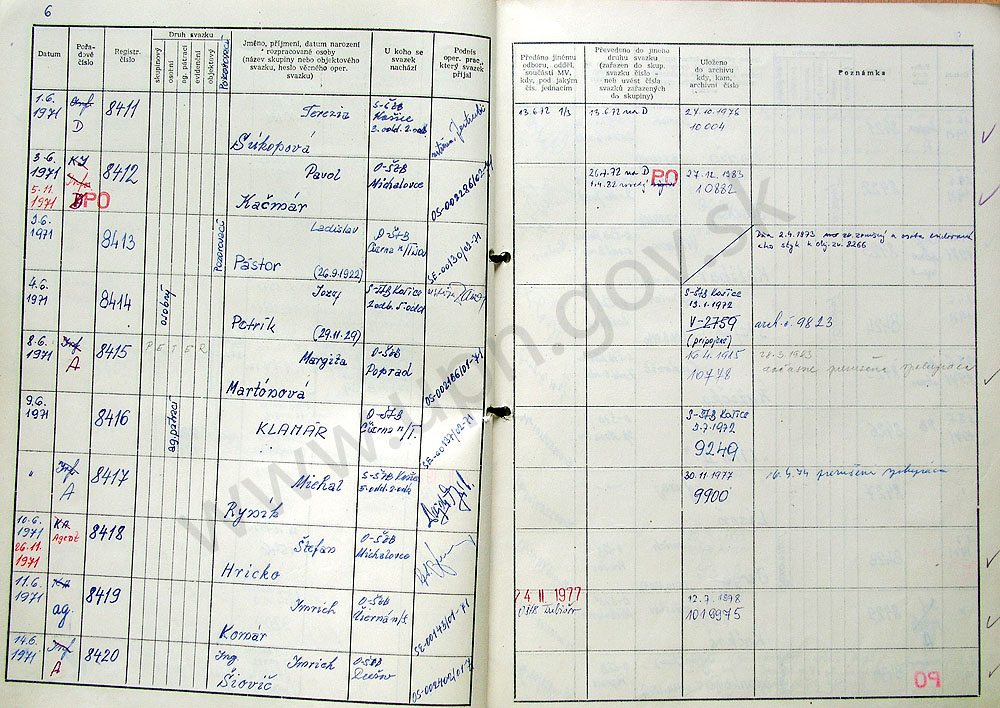 6
Datum
Pořa-
dové
číslo
Registr.
číslo
Druh svazku
skupinový
osobní
ag. pátrací
evidenční
objektový
Pozorovací
Jméno, příjmení, datum narození
rozpracované osoby
(název skupiny nebo objektového
svazku, heslo věcného oper.
svazku)
U koho se
svazek
nachází
Podpis
oper. prac.,
který svazek
přijal
Předáno jinému
odboru, odděl.
součásti MV,
kdy, pod jakým
čís. jednacím
Převedeno do jiného
druhu svazku
(zařazen do skup.
svazku číslo -
neb uvést čísla
svazků zařazených
do skupiny)
Uloženo
do archivu
kdy, kam,
archivní číslo
Poznámka
1.6.
1971
D
8411
Terezia
Súkopová
S-ŠtB
Košice
3.odd. 2.odb.
13.6.72
13.6.72 na D
27.10.1976
10 004
3.6.
1971
5.11.
1971
KJ
PO
8412
Pavol
Kačmár
O-ŠtB
Michalovce
OS-002286/02-71
26.1.72 na D
PO
27.12.1983
10882
3.6.
1971
8413
Pozorovací
Ladislav
Pástor
(26.9.1922)
O-ŠtB
Čierna n/Tisou
SE-00130/02-71
Dňa 2.4.1973
4.6.
1971
8414
osobný
Jozef
Petrík
(29.11.29)
S-ŠtB Košice
2.odb. 5.odd
S-ŠtB Košice
13.1.1972
V-2759
(pripojené)
arch.č. 9823
8.6.
1971
Inf
A
8415
PETER
Margita
Martónová
O-ŠtB
Poprad
OS-002166/01-71
10778
dočasne prerušená spolupráca
9.6.
1971
8416
ag. pátrací
KLAMÁR
O-ŠtB
Čierna n/T.
SE-00137/02-71
S-ŠtB Košice
3.7.1972
9249
"
Inf
A
8417
Michal
Rysík
S-ŠtB Košice
5.odd. 2.odb
30.11.1977
9900
16.4.74 prerušena spolupráca
10.6.
1971
26.11.
1971
KA
Agent
8418
Štefan
Hricko
O-ŠtB
Michalovce
11.6.
1971
ag.
8419
Imrich
Komár
O-ŠtB
Čierná n/T
SE-00143/01-71
24 II 1977
12.7.1978
1019975
14.6.
1971
Inf
A
8420
Ing.
Imrich
Šiovič
O-ŠtB
OS-002402/01-7
PO
www.upn.gov.sk